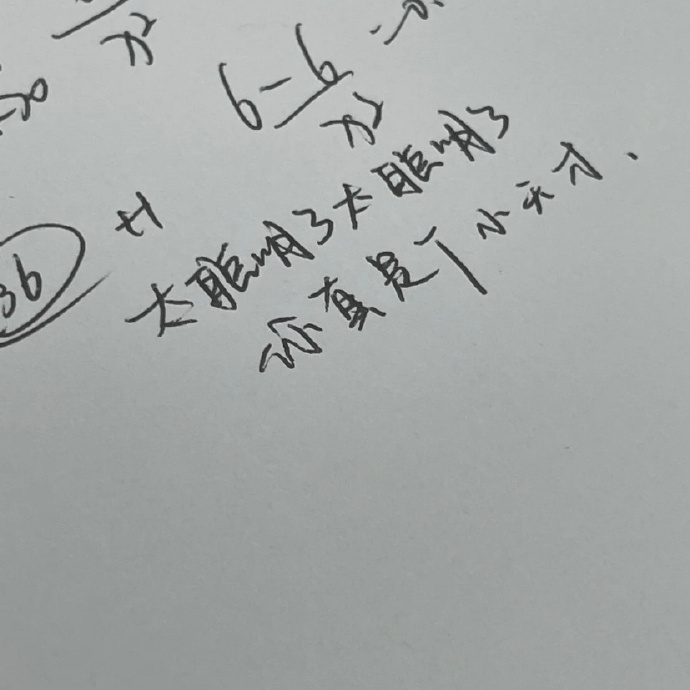 x²
6-6/x²
36
+1
太聪明了太聪明了
你真是个小天才.